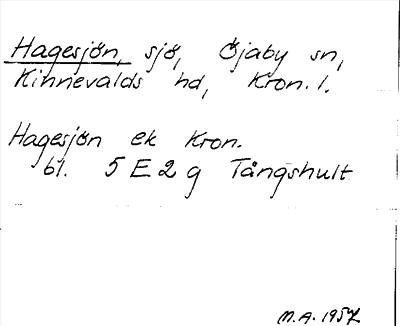 Hagesjön, sjö, Öjaby sn,
Kinnevalds hd, Kron. l.
Hagesjön ek Kron.
bl. 5 E 2 g Tångshult
M.A. 1957